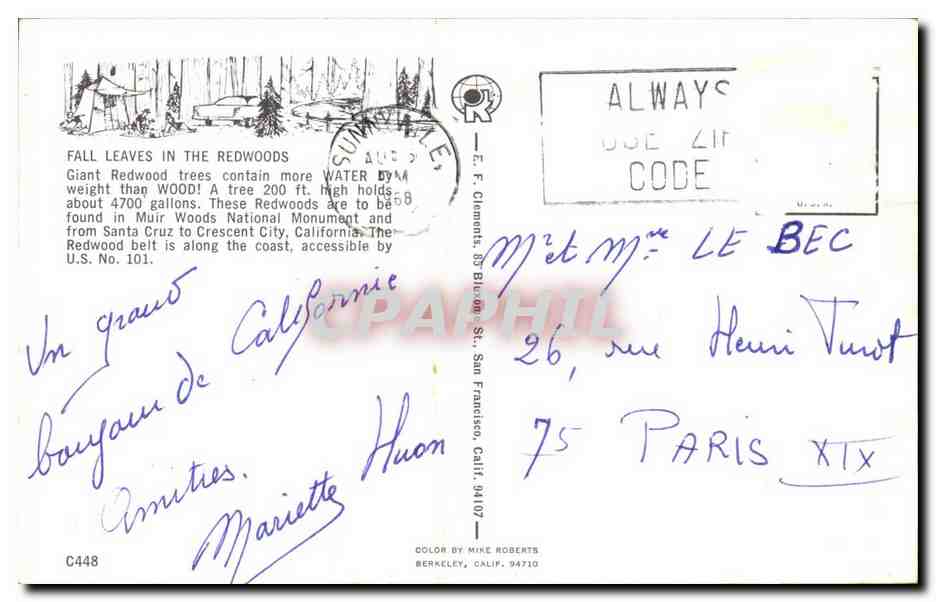 FALL LEAVES IN THE REDWOODS
Giant Redwood trees contain more WATER by
weight than WOOD! A tree 200 ft. high holds
about 4700 gallons. These Redwoods are to be
found in Muir Woods National Monument and
from Santa Cruz to Crescent City, California. The
Redwood belt is along the coast, accessible by
U.S. No. 101.
Un grand
bonjour de Californie
Amitiés.
Mariette Huon
C448
SUNNYVALE,
AUG
PM
1968
E. F. Clements, 85 Bluxome St., San Francisco, Calif. 94107
COLOR BY MIKE ROBERTS
BERKELEY, CALIF. 94710
ALWAYS
USE ZIP
CODE
Mr et Mme LE BEC
26, rue Henri Turot
75 PARIS XIX
CPAPHIL